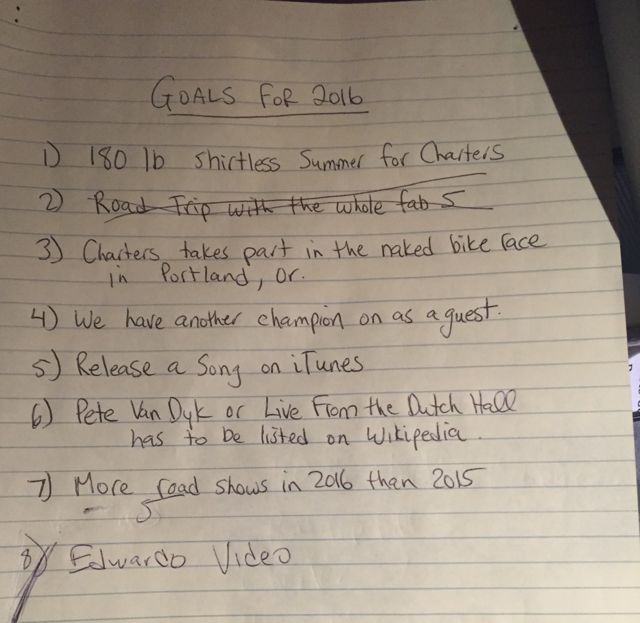 GOALS FOR 2016
1) 180 lb Shirtless Summer for Charters
2) Road Trip with the whole fab 5
3) Charters takes part in the naked bike race
in Portland, Or.
4) We have another champion on as a guest.
5) Release a Song on iTunes
6) Pete Van Dyk or Live From the Dutch Hall
has to be listed on Wikipedia.
7) More road shows in 2016 than 2015
5
8) Edwardo Video